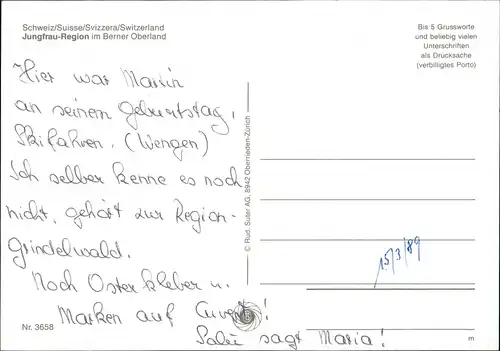 Schweiz/Suisse/Svizzera/Switzerland
Jungfrau-Region im Berner Oberland
Bis 5 Grussworte
und beliebig vielen
Unterschriften
als Drucksache
(verbilligtes Porto)
Hier war Martin
an seinem Geburtstag,
Skifahren. (Wengen)
Ich selber kenne es noch
nicht, gehört zur Region
Grindelwald.
Noch Osterkleber u.
Marken auf Cuvert!
Salü sagt Maria!
© Rud. Suter AG, 8942 Oberrieden-Zürich
15/3/89
Nr. 3658
m